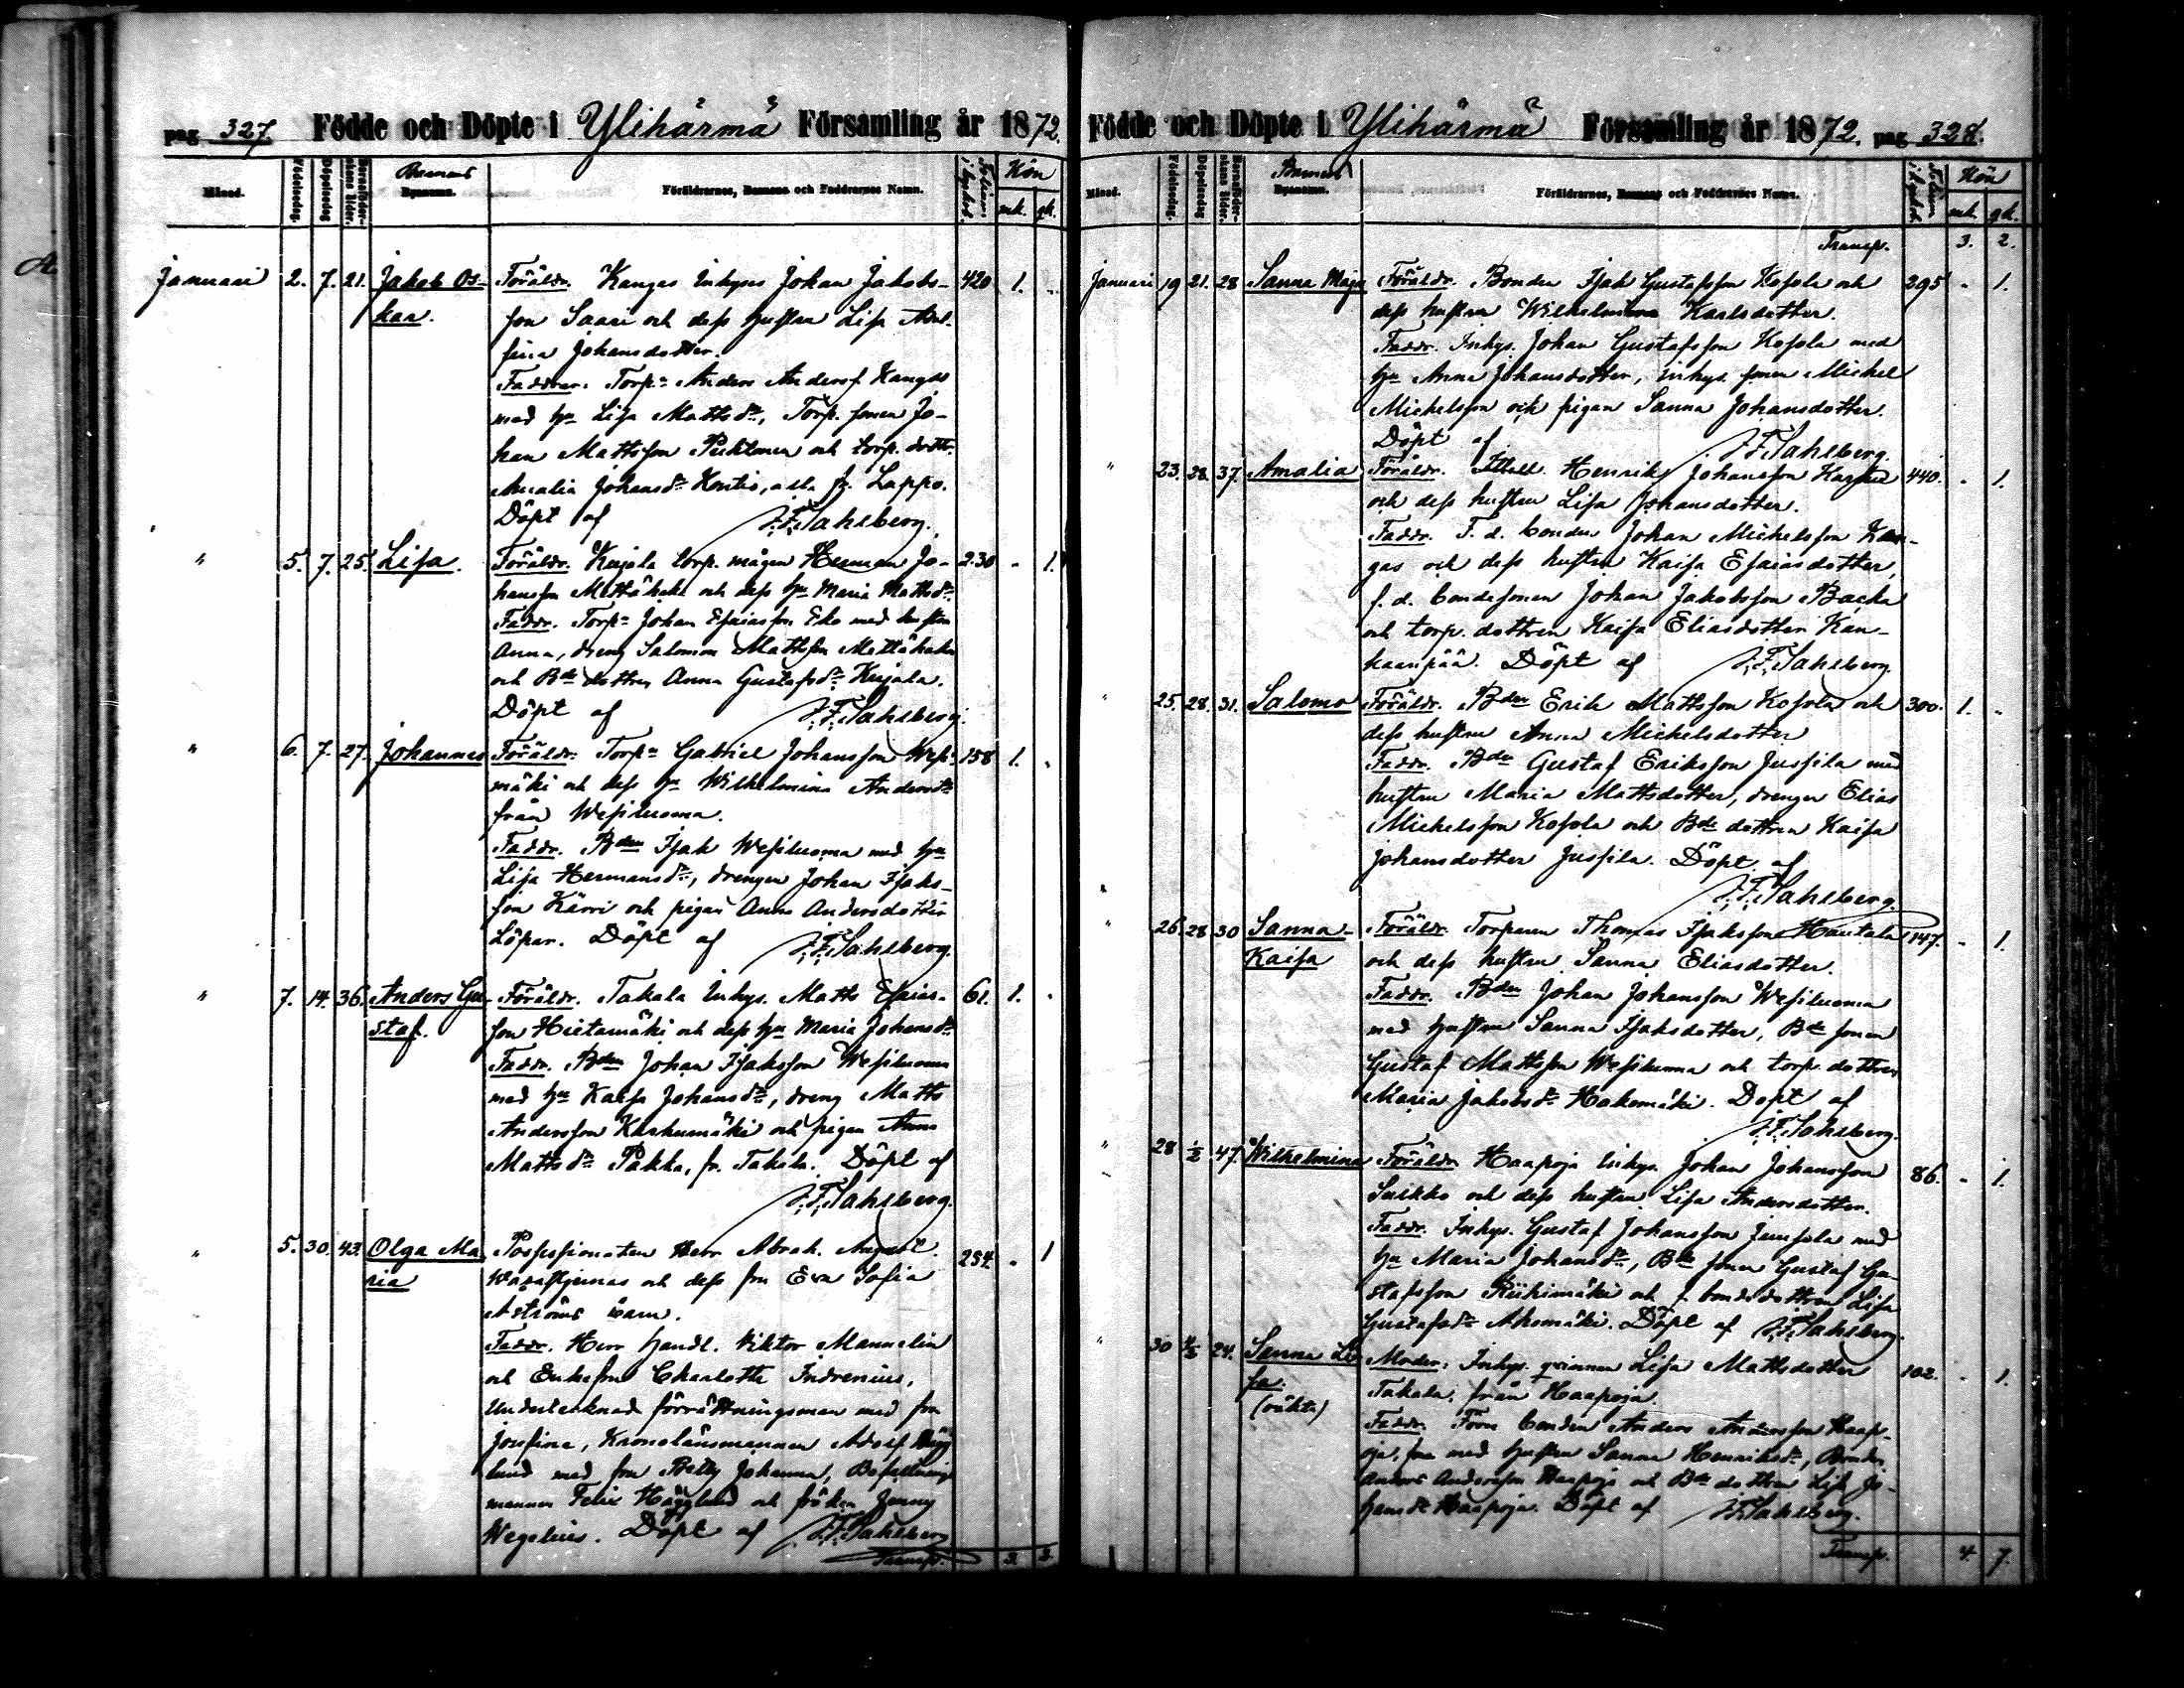 pag 327. Födde och Döpte i Ylihärmä Församling år 1872.
Månad. Födelsedag. Döpelsedag Barnaföderskans ålder. Barnens Byanamn. Föräldrarnes, Barnens och Faddrarnes Namn. Kön
mk. qk.
Januari 2. 7. 21. Jakob Os- Föräldr. Kangas Inhyses Johan Jakobs- 420 1. "
kar. son Saari och dess hustru Lisa
fina Johansdotter.
Faddrar. Torpn Anders Andersf. Kangas
med hu Lisa Mattsdr, Torp. sonen Jo-
han Mattsson och torp. dottr.
Amalia Johansdr Kontio, alla fr. Lappo.
Döpt af J.F. Sahlberg.
" 5. 7. 25. Lisa. Föräldr. Kujala torp. mågen Herman Jo- 230 " 1.
hansson och dess hu Maria Mattsdr
Faddr. Torpn Johan Esaiasson Eko med hustru
Anna, dreng Salomon Mattsson
och Bde dottren Anna Gustafsdr Kujala.
Döpt af J.F. Sahlberg.
" 6. 7. 27. Johannes Föräldr. Torpn Gabriel Johansson Wesi- 158 1. "
mäki och dess hu Wilhelmina Andersdr
från Wesiluoma.
Faddr. Bden Isak Wesiluoma med hu
Lisa Hermansdr, drengen Johan Isaks-
son Kärri och pigan Anna Andersdotter
Löpar. Döpt af J.F. Sahlberg.
" 7. 14. 36. Anders Gu- Föräldr. Takala Inhys. Matts Esaias- 61. 1. "
staf. son Hietamäki och dess hu Maria Johansdr
Faddr. Bden Johan Isaksson Wesiluoma
med hu Kaisa Johansdr, dreng Matts
Andersson Karhumäki och pigan Anna
Mattsdr Pakka, fr. Takala. Döpt af
J.F. Sahlberg.
" 5. 30. 43. Olga Ma- Possessionaten Herr Abrah. August 254. " 1
ria Wasastjernas och dess fru Eva Sofia
Aströms barn.
Faddr. Herr Handl. Viktor Mannelin
och Enkefru Charlotte Indrenius,
Undertecknad förrättningsman med fru
Josefina, Kronolänsmannen Adolf Hägg-
lund med fru Betty Johanna, Befallnings-
mannen Felix Hägglund och fröken Jenny
Wegelius. Döpt af J.F. Sahlberg
Transp. 3. 2.
Födde och Döpte i Ylihärmä Församling år 1872. pag 328.
Månad. Födelsedag. Döpelsedag Barnaföderskans ålder. Barnens Byanamn. Föräldrarnes, Barnens och Faddrarnes Namn. Kön
mk. qk.
Transp. 3. 2.
Januari 19 21. 28 Sanna Maja Föräldr. Bonden Isak Gustafsson Kosola och 295 " 1.
dess hustru Wilhelmina Karlsdotter.
Faddr. Inhys. Johan Gustafsson Kosola med
hu Anna Johansdotter, inhys. sonen Michel
Michelsson och pigan Sanna Johansdotter.
Döpt af J.F. Sahlberg.
" 23. 28. 37. Amalia Föräldr. Henrik Johansson 440. " 1.
och dess hustru Lisa Johansdotter.
Faddr. F. d. bonden Johan Michelsson Kan-
gas och dess hustru Kaisa Esaiasdotter,
f. d. bondesonen Johan Jakobsson Backa
och torp. dottren Kaisa Eliasdotter Kan-
kaanpää. Döpt af J.F. Sahlberg.
" 25. 28. 31. Salomo Föräldr. Bden Erik Mattsson Kosola och 300. 1. "
dess hustru Anna Michelsdotter
Faddr. Bden Gustaf Eriksson Jussila med
hustru Maria Mattsdotter, drengen Elias
Michelsson Kosola och Bde dottren Kaisa
Johansdotter Jussila. Döpt af
J.F. Sahlberg.
" 26. 28 30 Sanna- Föräldr. Torparen Thomas Isaksson Hautala 147. " 1.
Kaisa och dess hustru Sanna Eliasdotter.
Faddr. Bden Johan Johansson Wesiluoma
med hustru Sanna Isaksdotter, Bde sonen
Gustaf Mattsson Wesiluoma och torp. dottren
Maria Jakobsdr Hakomäki. Döpt af
J.F. Sahlberg.
" 28 1/2 47. Wilhelmina Föräldr. Haapoja Inhys. Johan Johansson 86. " 1.
Suikko och dess hustru Lisa Andersdotter.
Faddr. Inhys. Gustaf Johansson med
hu Maria Johansdr, Bde sonen Gustaf Gu-
stafsson Riihimäki och f. bondedottren Lisa
Gustafsdr Ahomäki. Döpt af J.F. Sahlberg.
" 30 4/2 24. Sanna Li- Moder: Inhys. qvinnan Lisa Mattsdotter 102. " 1.
sa. Takala, från Haapoja.
(oäkta) Faddr. Förre bonden Anders Andersson Haap-
oja, med hustru Sanna Henriksdr, Bonden
Anders Andersson Haapoja och Bde dottren Lisa Jo-
hansdr Haapoja. Döpt af J.F. Sahlberg.
Transp. 4. 7.